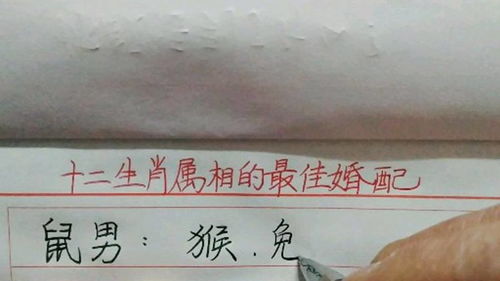 十二生肖属相的最佳婚配
鼠男：猴.免